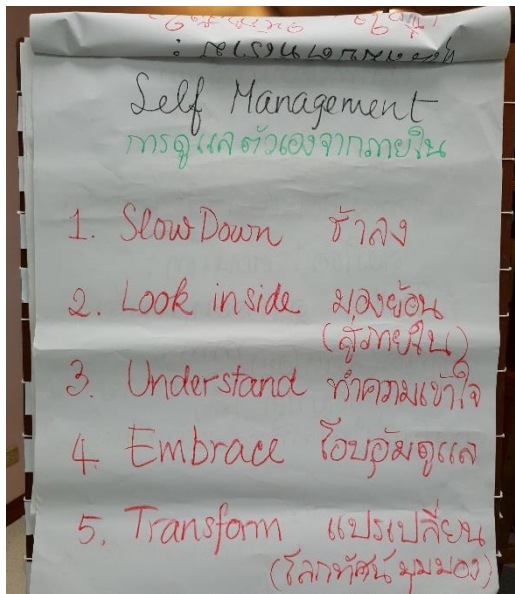 Self Management
การดูแลตัวเองจากภายใน
1. Slow Down ช้าลง
2. Look inside มองย้อน
(สู่ภายใน)
3. Understand ทำความเข้าใจ
4. Embrace โอบอุ้มดูแล
5. Transform แปรเปลี่ยน
(โลกทัศน์ มุมมอง)